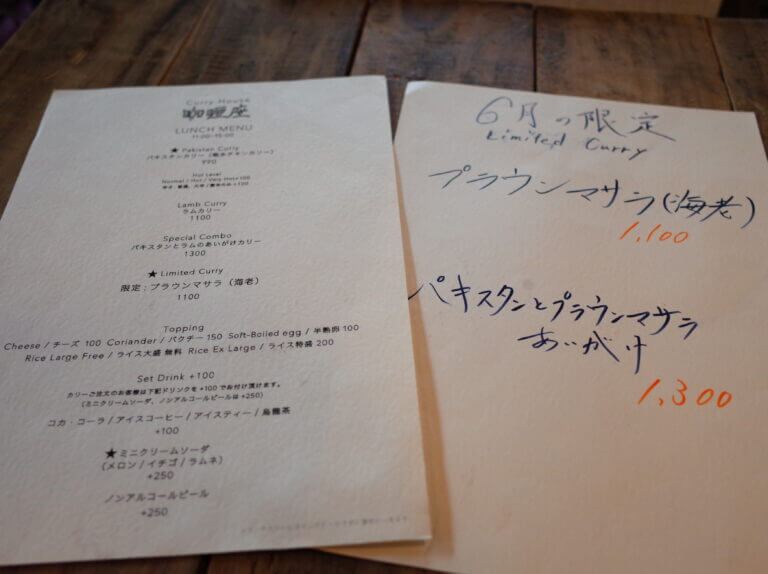 Curry House
LUNCH MENU
11:00-15:00
★ Pakistan Curry
パキスタンカリー（無水チキンカリー）
990
Hot Level
Normal / Hot / Very Hot+100
Lamb Curry
ラムカリー
1100
Special Combo
パキスタンとラムのあいがけカリー
1300
★ Limited Curry
限定：プラウンマサラ（海老）
1100
Topping
Cheese / チーズ 100 Coriander / パクチー 150 Soft-Boiled egg / 半熟卵 100
Rice Large Free / ライス大盛 無料 Rice Ex Large / ライス特盛 200
Set Drink +100
カリーご注文のお客様は下記ドリンクを +100 でお付け頂けます。
（ミニクリームソーダ、ノンアルコールビールは +250）
コカ・コーラ / アイスコーヒー / アイスティー / 烏龍茶
+100
★ ミニクリームソーダ
（メロン / イチゴ / ラムネ）
+250
ノンアルコールビール
+250
6月の限定
Limited Curry
プラウンマサラ(海老)
1,100
パキスタンとプラウンマサラ
あいがけ
1,300